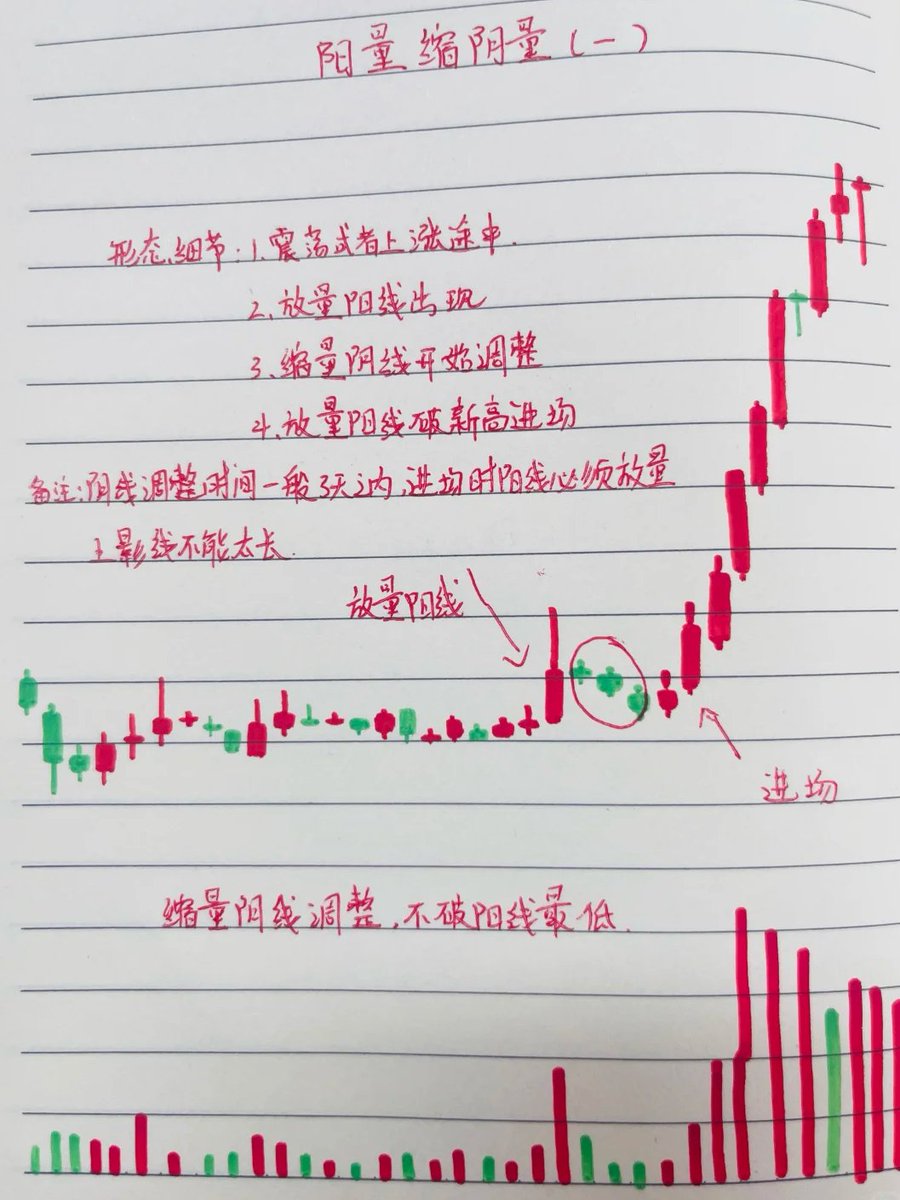 阳量缩阴量(一)
形态细节:1.震荡或者上涨途中.
2.放量阳线出现
3.缩量阴线开始调整
4.放量阳线破新高进场
备注:阴线调整时间一般3天之内,进场时阳线必须放量
上影线不能太长.
放量阳线
进场
缩量阴线调整,不破阳线最低.